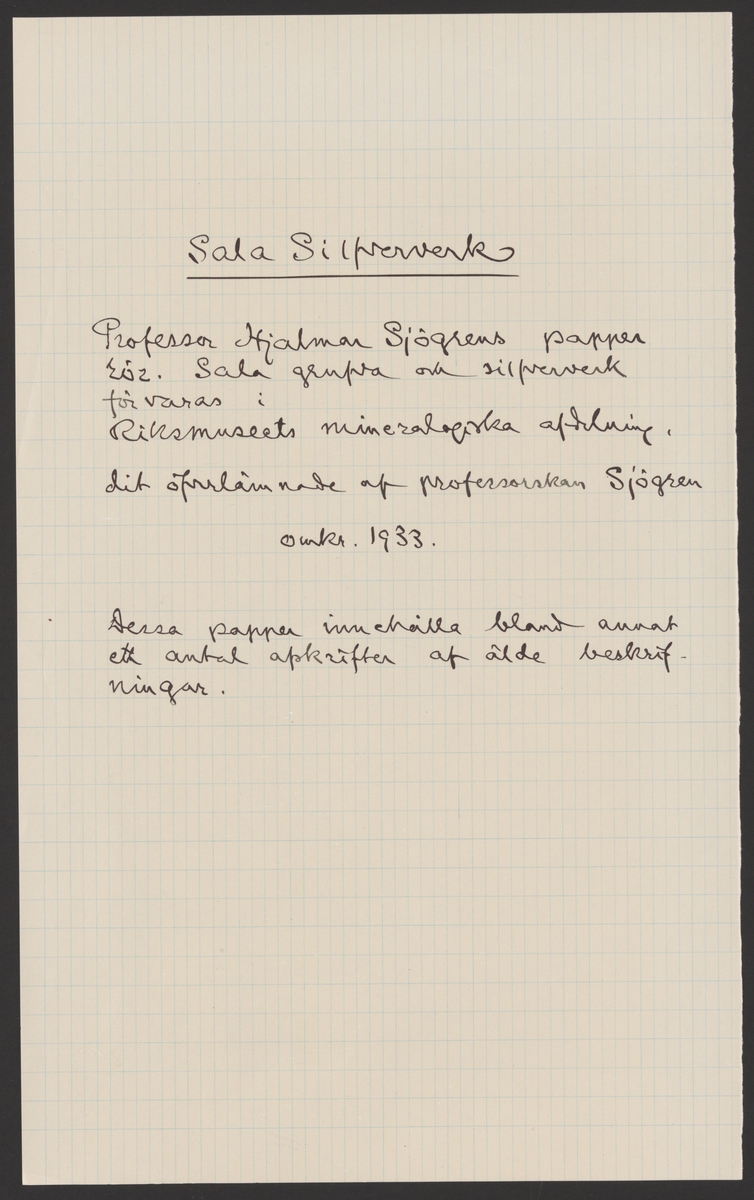 Sala Silfververk
Professor Hjalmar Sjögrens papper
rör. Sala grufva och silfververk
förvaras i
Riksmuseets mineralogiska afdelning,
dit öfverlämnade af professorskan Sjögren
omkr. 1933.
Dessa papper innehålla bland annat
ett antal afskrifter af älde beskrif-
ningar.